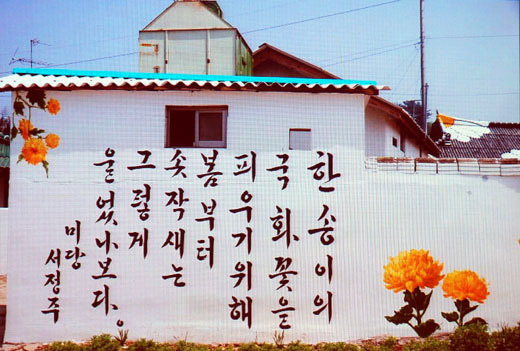 한송이의
국화꽃을
피우기위해
봄부터
솟작새는
그렇게
울었나보다.
미당
서정주